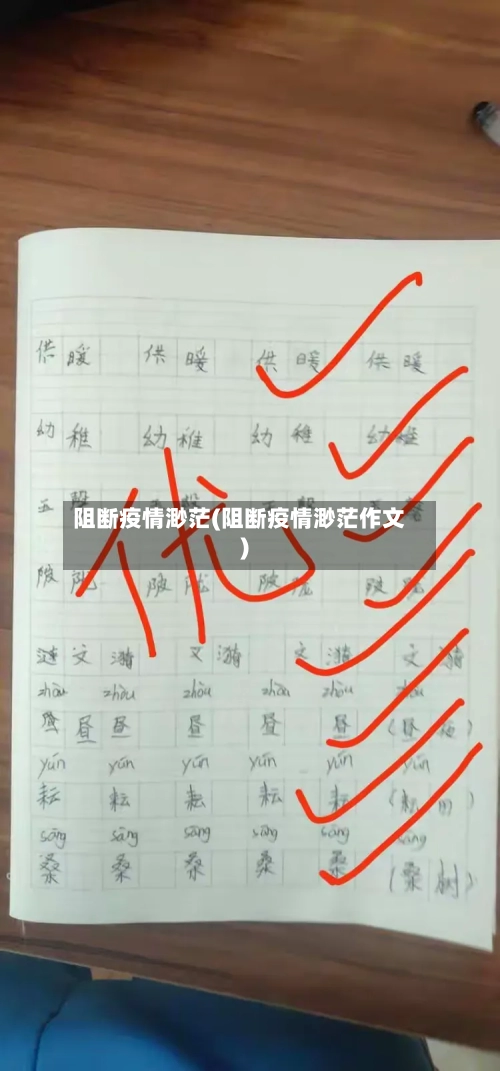 供暖 供暖 供暖 供暖
幼稚 幼稚 幼稚 幼稚
五
阻断疫情渺茫(阻断疫情渺茫作文
)
优
陂陇 陂陇 陂陇 陂陇
涟文漪 文漪 文漪 文漪
zhòu zhòu zhòu zhòu zhòu zhòu
昼昼 昼 昼 昼 (昼夜)
yún yún yún yún yún yún
耘 耘 耘 耘 耘 (耘田)
sāng sāng sāng sāng sāng sāng
桑 桑 桑 桑 桑 (桑树)